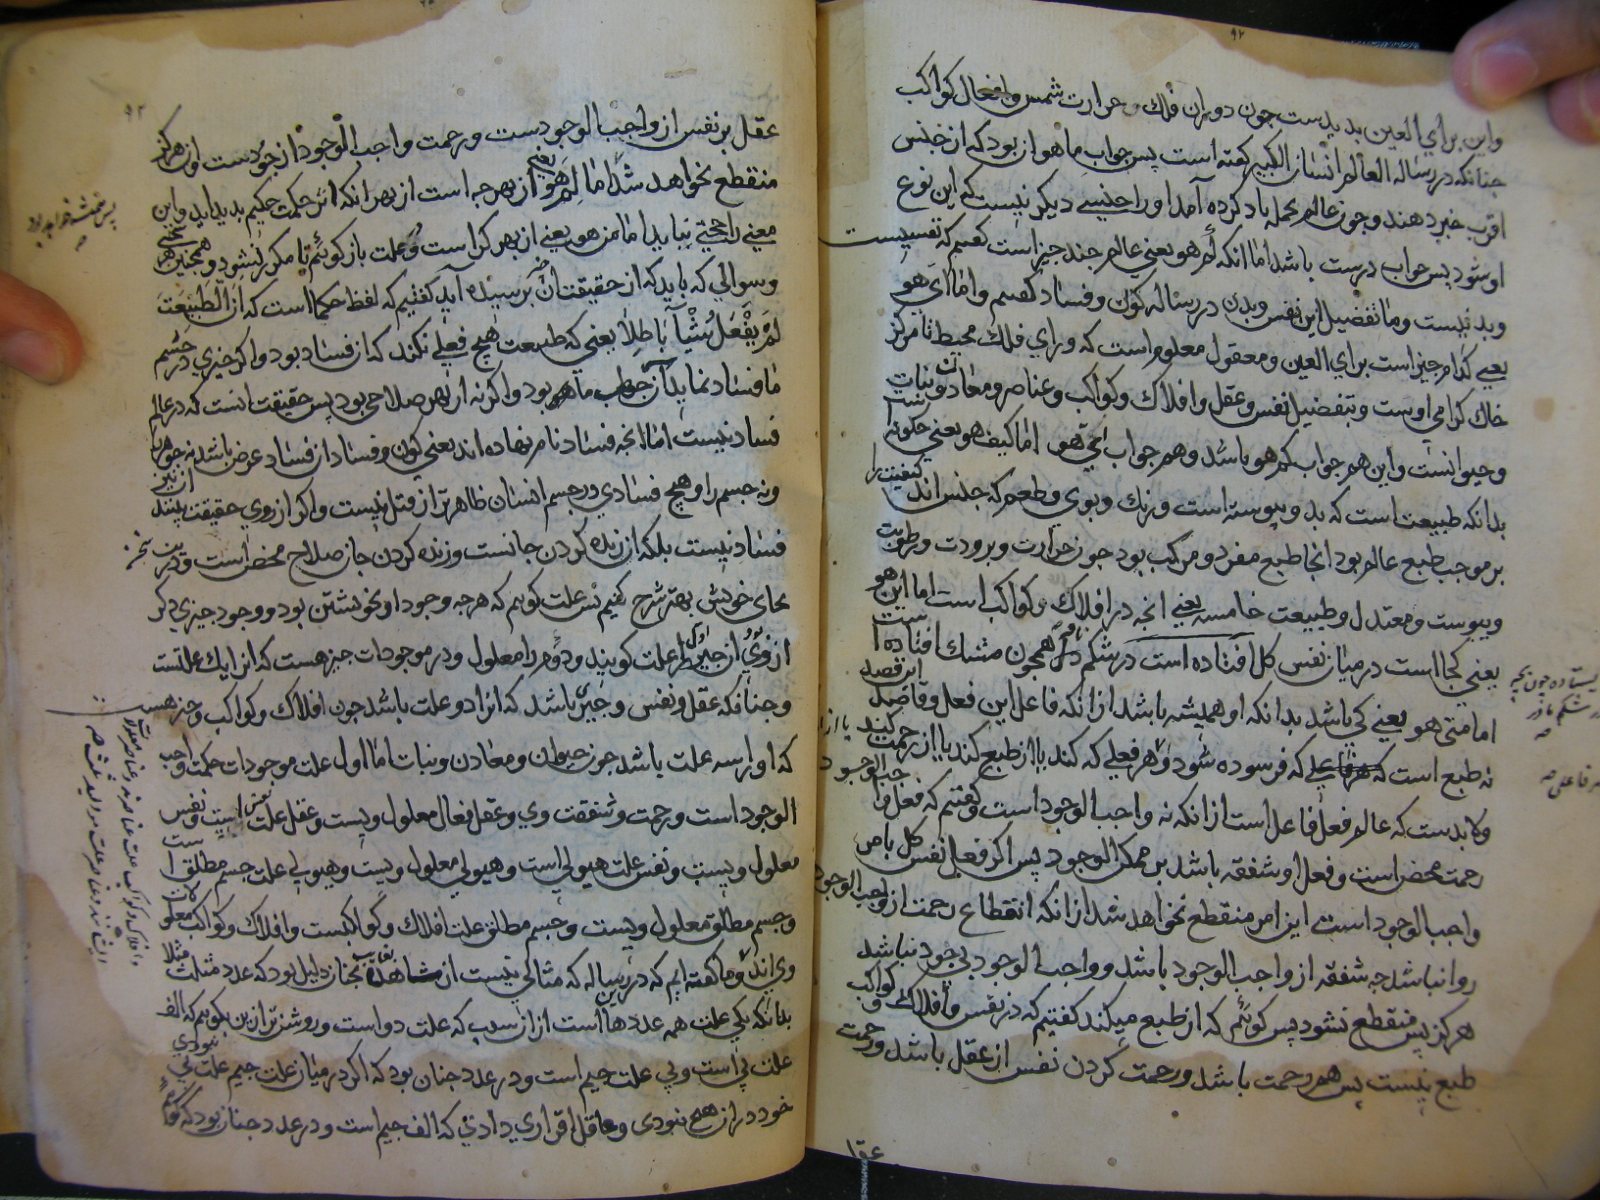 ۹۲
واین برای العین بدیدست چون دوران فلک و حرارت شمس وافعال کواکب
چنانکه در رساله العالم انسان الکبیر گفته است پس جواب ما هو ان بود که از جنس
اقرب خبر دهند وچون عالم بجمله یاد کرده آمد اورا جنسی دیگر نیست که این نوع
او شود پس جواب درست باشد اما انکه کم هو یعنی عالم چند چیز است گفتیم که نفسیست
وبدنیست وما تفضیل این نفس وبدن در رساله کون وفساد گفتیم واما ای هو
یعنی کدام چیز است برای العین ومعقول معلوم است که ورای فلک محیط تا مرکز
خاک کرامی اوست وبتفضیل نفس وعقل وافلاک وکواکب وعناصر ومعادن ونبات
وحیوانست واین هم جواب کم هو باشد وهم جواب ای هو اما کیف هو یعنی چگونه است
بدانکه طبیعت است که بدو پیوسته است ورنگ وبوی وطعم که جنس اند کیفیت را
بر موجب طبع عالم بود انجا طبع مفرد ومرکب بود چون حرارت وبرودت ورطوبت
ویبوست ومعتدل وطبیعت خامسه یعنی انچه در افلاک وکواکب است اما این هو
یعنی کجا است در میان نفس کل افتاده است در شکم مادر همچون مشک افتاده است
اما متی هو یعنی کی باشد بدانکه او همیشه باشد از انکه فاعل این فعل وقاصد این قصد
نه طبع است که فرسوده شود وهر فعلی که کند یا از طبع کند یا از رحمت کند یا از
ولابدست که عالم فعل فاعل است از انکه نه واجب الوجود است وگفتیم که فعل واجب الوجود
رحمت محض است وفعل او شفقه باشد بر ممکن الوجود پس اگر فعل نفس کل بامر
واجب الوجود است این امر منقطع نخواهد شد از انکه انقطاع رحمت از واجب الوجود
روا نباشد چه شفقه از واجب الوجود باشد وواجب الوجود بی جود نباشد
هرگز پس منقطع نشود پس گوئیم که از طبع میکند گفتیم که در نفس وافلاک وکواکب
طبع نیست پس هم رحمت باشد ورحمت کردن نفس از عقل باشد ورحمت
ایستاده چون بچه
در شکم مادر
هر فاعلی
۹۲
عقل بر نفس از واجب الوجودست ورحمت واجب الوجود از جودست وان هرگز
منقطع نخواهد شد اما لم هو یعنی از بهر چه است از بهر انکه اثر حکمت حکیم پدید اید واین
معنی را حجتی نباید اما من هو یعنی از بهر کراست وعلت باز گوئیم تا مکرر نشود وهمچنین هر
وسوالی که باید که از حقیقت ان پرسیده آید گفتیم که لفظ حکما است که ان الطبیعت
لم یفعل شیأ باطلا یعنی که طبیعت هیچ فعلی نکند که از فساد بود واگر چیزی در چشم
ما فساد نماید آن بود واگر نه ان بهر صلاحی بود پس حقیقت انست که در عالم
فساد نیست اما انچه فساد نام نهاده اند یعنی کون وفساد از فساد عرض باشد نه جوهر
ونه جسم را وهیچ فسادی در جسم انسان ظاهرتر از قتل نیست واگر از روی حقیقت بینند ان نیز
فساد نیست بلکه از زنده کردن جانست وزنده کردن جان صلاح محض است ودرین سخن
بجای خویش بهتر شرح کنیم پس علت گوئیم که هرچه وجود او بخویشتن بود ووجود چیزی دگر
از وی بود ان چیز اول را علت گویند ودوم را معلول ودر موجودات چیز هست که انرا یک علتست
وچنانکه عقل ونفس وچیز باشد که انرا دو علت باشد چون افلاک وکواکب وچیز هست
که اورا سه علت باشد چون حیوان ومعادن ونبات اما اول علت موجودات حکمت واجب
الوجود است ورحمت وشفقت وی وعقل فعال معلول ویست وعقل علت نفس است ونفس
معلول ویست ونفس علت هیولی است وهیولی معلول ویست وهیولی علت جسم مطلق است
وجسم مطلق معلول ویست وجسم مطلق علت افلاک وکواکبست وافلاک وکواکب معلولان
وی اند وما گفته ایم که درین رساله که مثالی نیست از مشاهده چنان دلیل بود که عدد مثلا
بدانکه یکی علت همه عددها است از ان سبب که علت دو است وروشن تر ازین بگویم که الف
علت بی است وبی علت جیم است ودر عدد چنان بود که اگر در میان علت جیم علت بی نبودی
خود در ان هیچ نبودی وعاقل اقراری دادی که الف جیم است ودر عدد چنان بود که گوئی